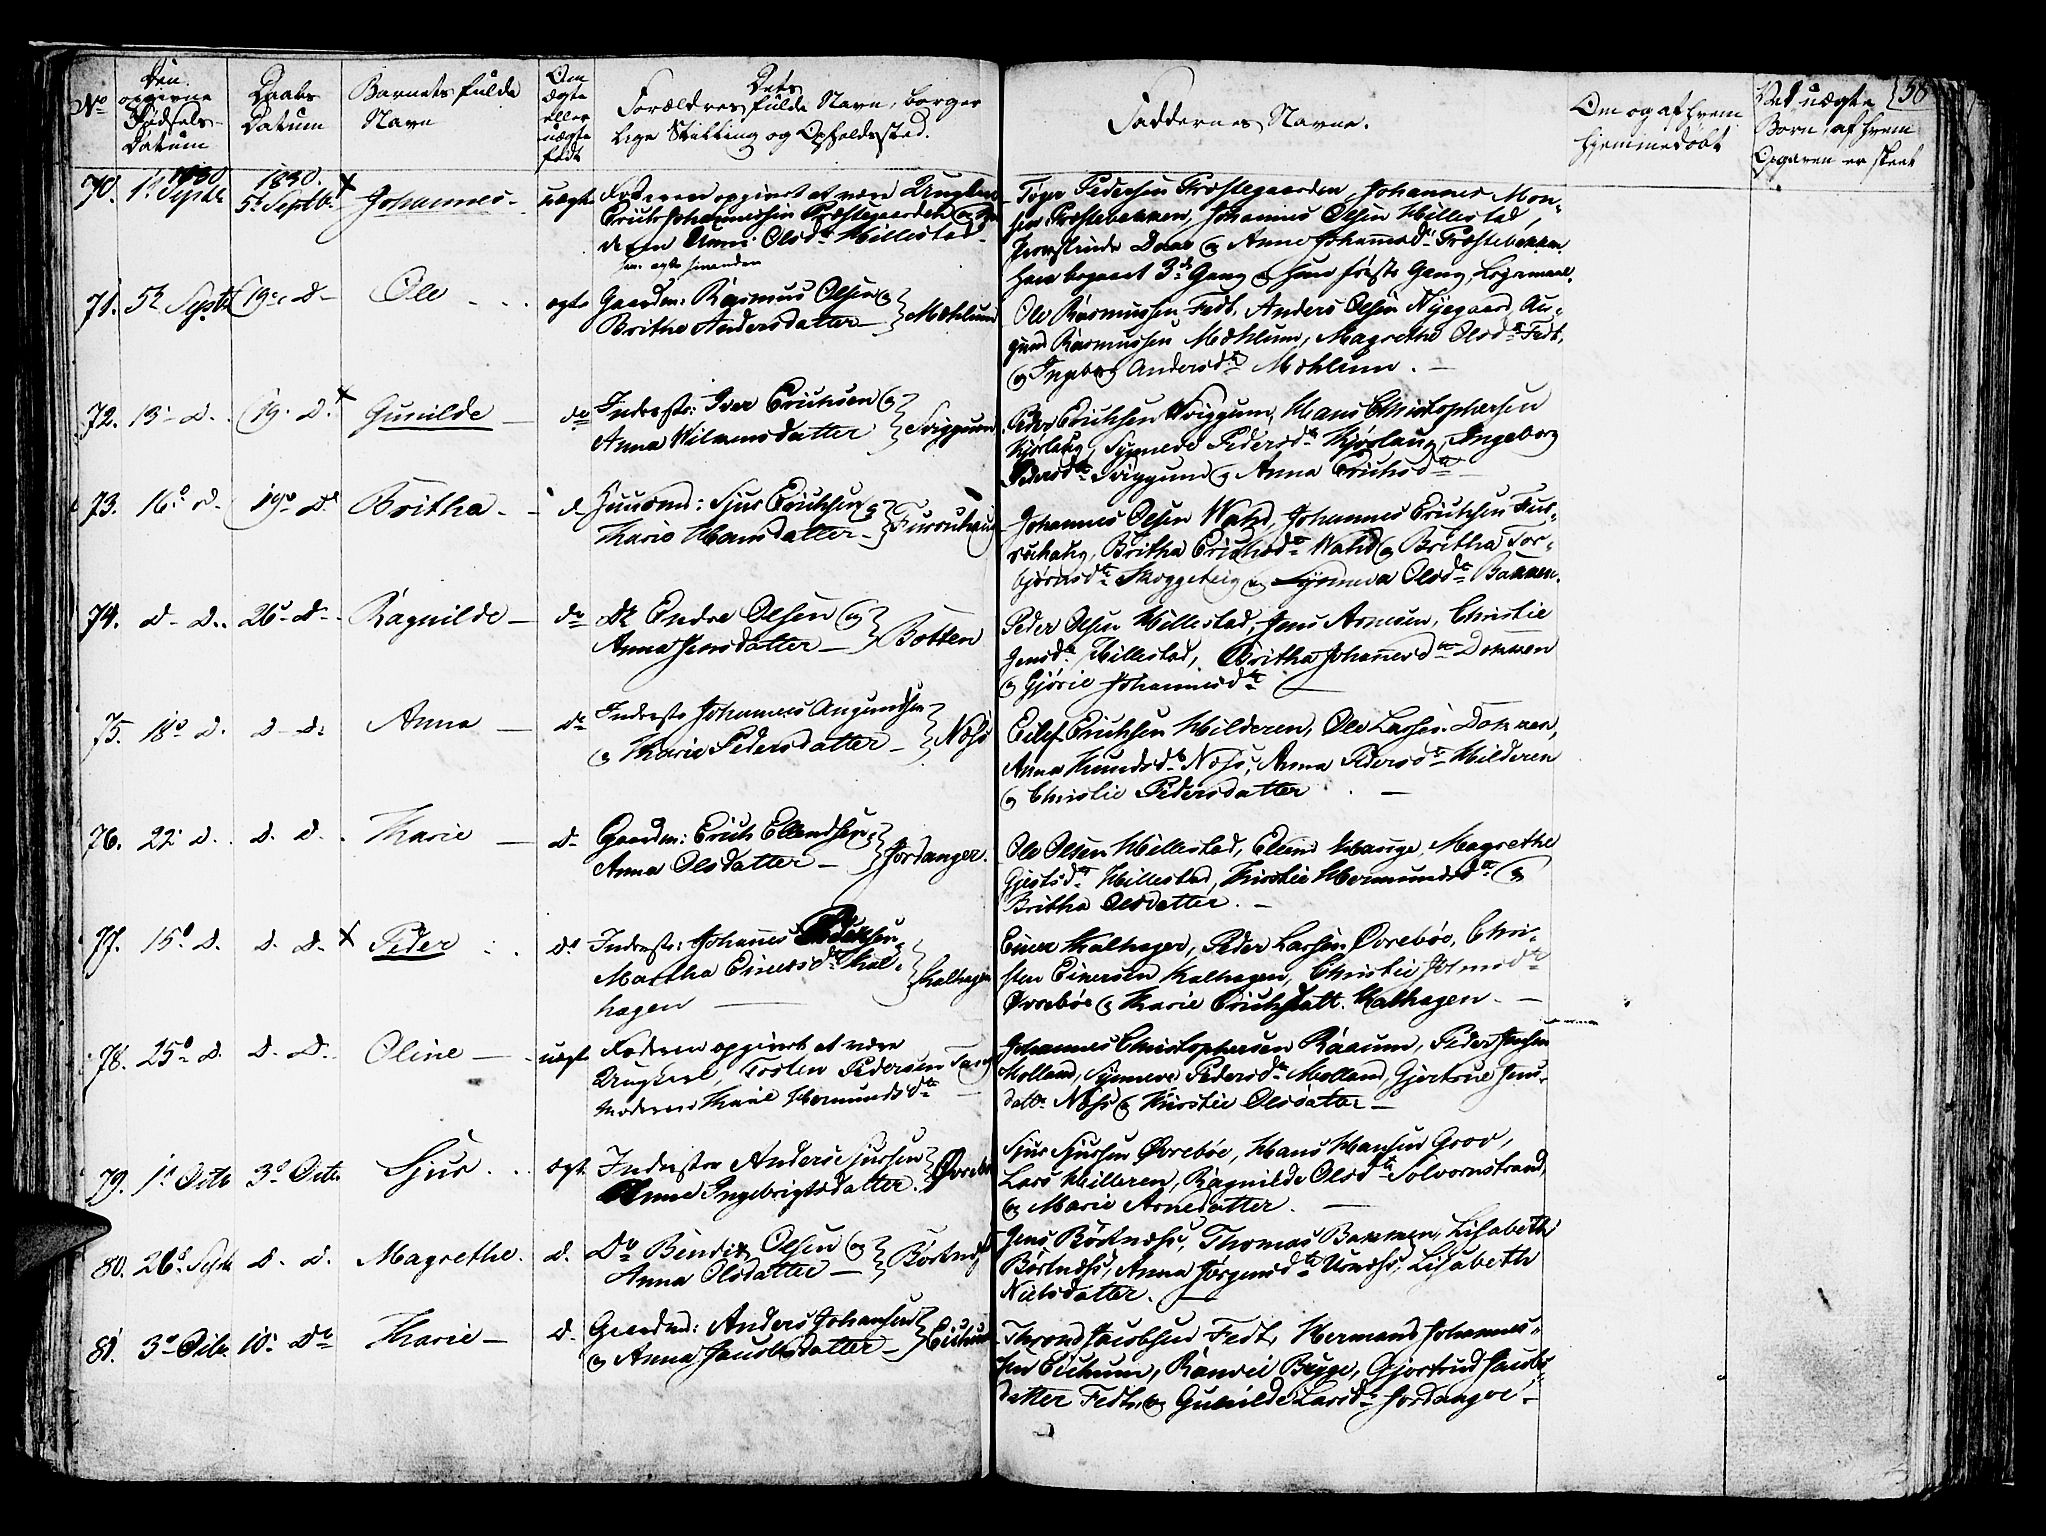 58
No
Den opgivne Fødsels- Datum
Daabs Datum
Barnets fulde Navn
Om ægte eller uægte født
Dets Forældres fulde Navn, borgerlige Stilling og Opholdssted.
Faddernes Navne.
Om og af hvem hjemmedøbt
Ved uægte Børn, af hvem Opgaven er skeet
1830 1830.
70. 1. Septbr 5. Septbr. x Johannes - uægt. Faderen opgivet at være Ungkarl
Erich Johannessen Præstegaarden og
Olsdr Hillestad -
Tøger Pedersen Præstegaarden, Johannes Mon-
sen Præstebakken, Johannes Olsen Hillestad,
Daae og Anne Johannsdr Præstebakken.
Han begaaet 3die Gang og hun første Gang Lejermaal.
71. 5te Septbr 19. D - Ole - ægte Gaardm: Rasmus Olsen og
Brithe Andersdatter - Mæhlum
Ole Rasmussen Fedt, Anders Olsen Nyegaard, Au-
gund Rasmussen Mæhlum, Magrethe Olsdr Fedt,
og Ingeborg Andersdr Mæhlum. -
72. 13 - D. 19. D. x Gunilde - do Inderste: Iver Erichsen og
Anna Willumsdatter Sviggum
Peder Erichsen Sviggum, Hans Christophersen
Kjørlaug, Synneve Pedersdr Kjørlaug, Ingeborg
Pedersdr Sviggum og Anna Erichsdr
73. 16. D. 19. D. Britha - d. Huusmd: Sjur Erichsen og
Karie Hansdatter - Furruhaug
Johannes Olsen Wahd, Johannes Erichsen Fur-
ruhaug, Britha Erichsdr Wahd og Britha Tor-
bjørnsdr Skoggeteig og Synneva Olsdr Bakken.
74. D - D. 26. D - Ragnilde - do Do Endre Olsen og
Anna Jensdatter - Botten
Peder Olsen Hillestad, Jens Arnesen, Christie
Jensdr Hillestad, Britha Johannesdr Dokken
og Gjørie Johannesdr -
75. 18. D. D - D. Anna - do Inderste Johannes Augundsen
og Karie Pedersdatter - Næss
Eilef Erichsen Hilderen, Ole Larsen Dokken,
Anna Knudsdr Næss, Anna Pedersdr Hilderen
og Christie Pedersdatter. -
76. 22. D. D. D. Karie - do Gaardm: Erich Ellendsen,
Anna Olsdatter - Jordanger.
Ole Olsen Hillestad, Ellend Hauge, Magrethe
Gjestsdr Hillestad, Kirstie Hermundsdr og
Britha Olsdatter. -
77. 15. D. D. D. x Peder do Inderste: Johannes
Martha Einersdr Kal-
hagen - Kalhagen
Einer Kalhagen, Peder Larsen Øvrebøe, Chri-
sten Einersen Kalhagen, Christie Johnsdr
Øvrebøe og Karie Erichsdatt. Kalhagen. -
78. 25. D. D. D. Oline - uægt Faderen opgivet at være
Ungkarl, Torsten Pedersen
Moderen Karie Hermundsdr
Johannes Christophersen Raaum, Peder Jensen
Molland, Synneve Pedersdr Molland, Gjertrue Jens-
datt. Næss og Kirstie Olsdatter -
79. 1. Octb 3. Octb. Sjur. ægt. Inderste Anders Sjursen
Anne Ingebrigtsdatter. Øvrebø
Sjur Sjursen Øvrebøe, Hans Hansen Groov,
Lars Hilleren, Ragnilde Olsdr Solvornstrand,
og Marie Arnedatter. -
80. 26. Septb D. D. Magrethe. d. Do Bendix Olsen og
Anna Olsdatter - Børtnæss
Jens Børtnæss, Thomas Bakken, Lisabeth
Børtnæss, Anna Jørgensdr Urnæss, Lisabeth
Nielsdatter. -
81. 3. Octb. 10. Do Karie - D. Gaardmd: Anders Johansen
og Anna Jacobsdatter - Eichum
Thrond Jacobsen Fedt, Hermand Johannes-
sen Eichum, Randei Bugge, Gjørtrud Jacobs-
datter Fedt, og Gunilde Larsdr Jordanger -